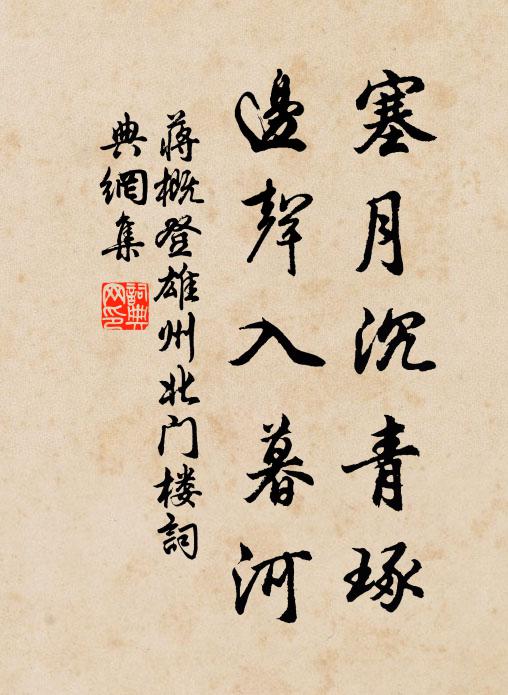 塞月沉青琢
邊聲入暮河
蔣概登雄州北门楼詞
典網集
詞典网印